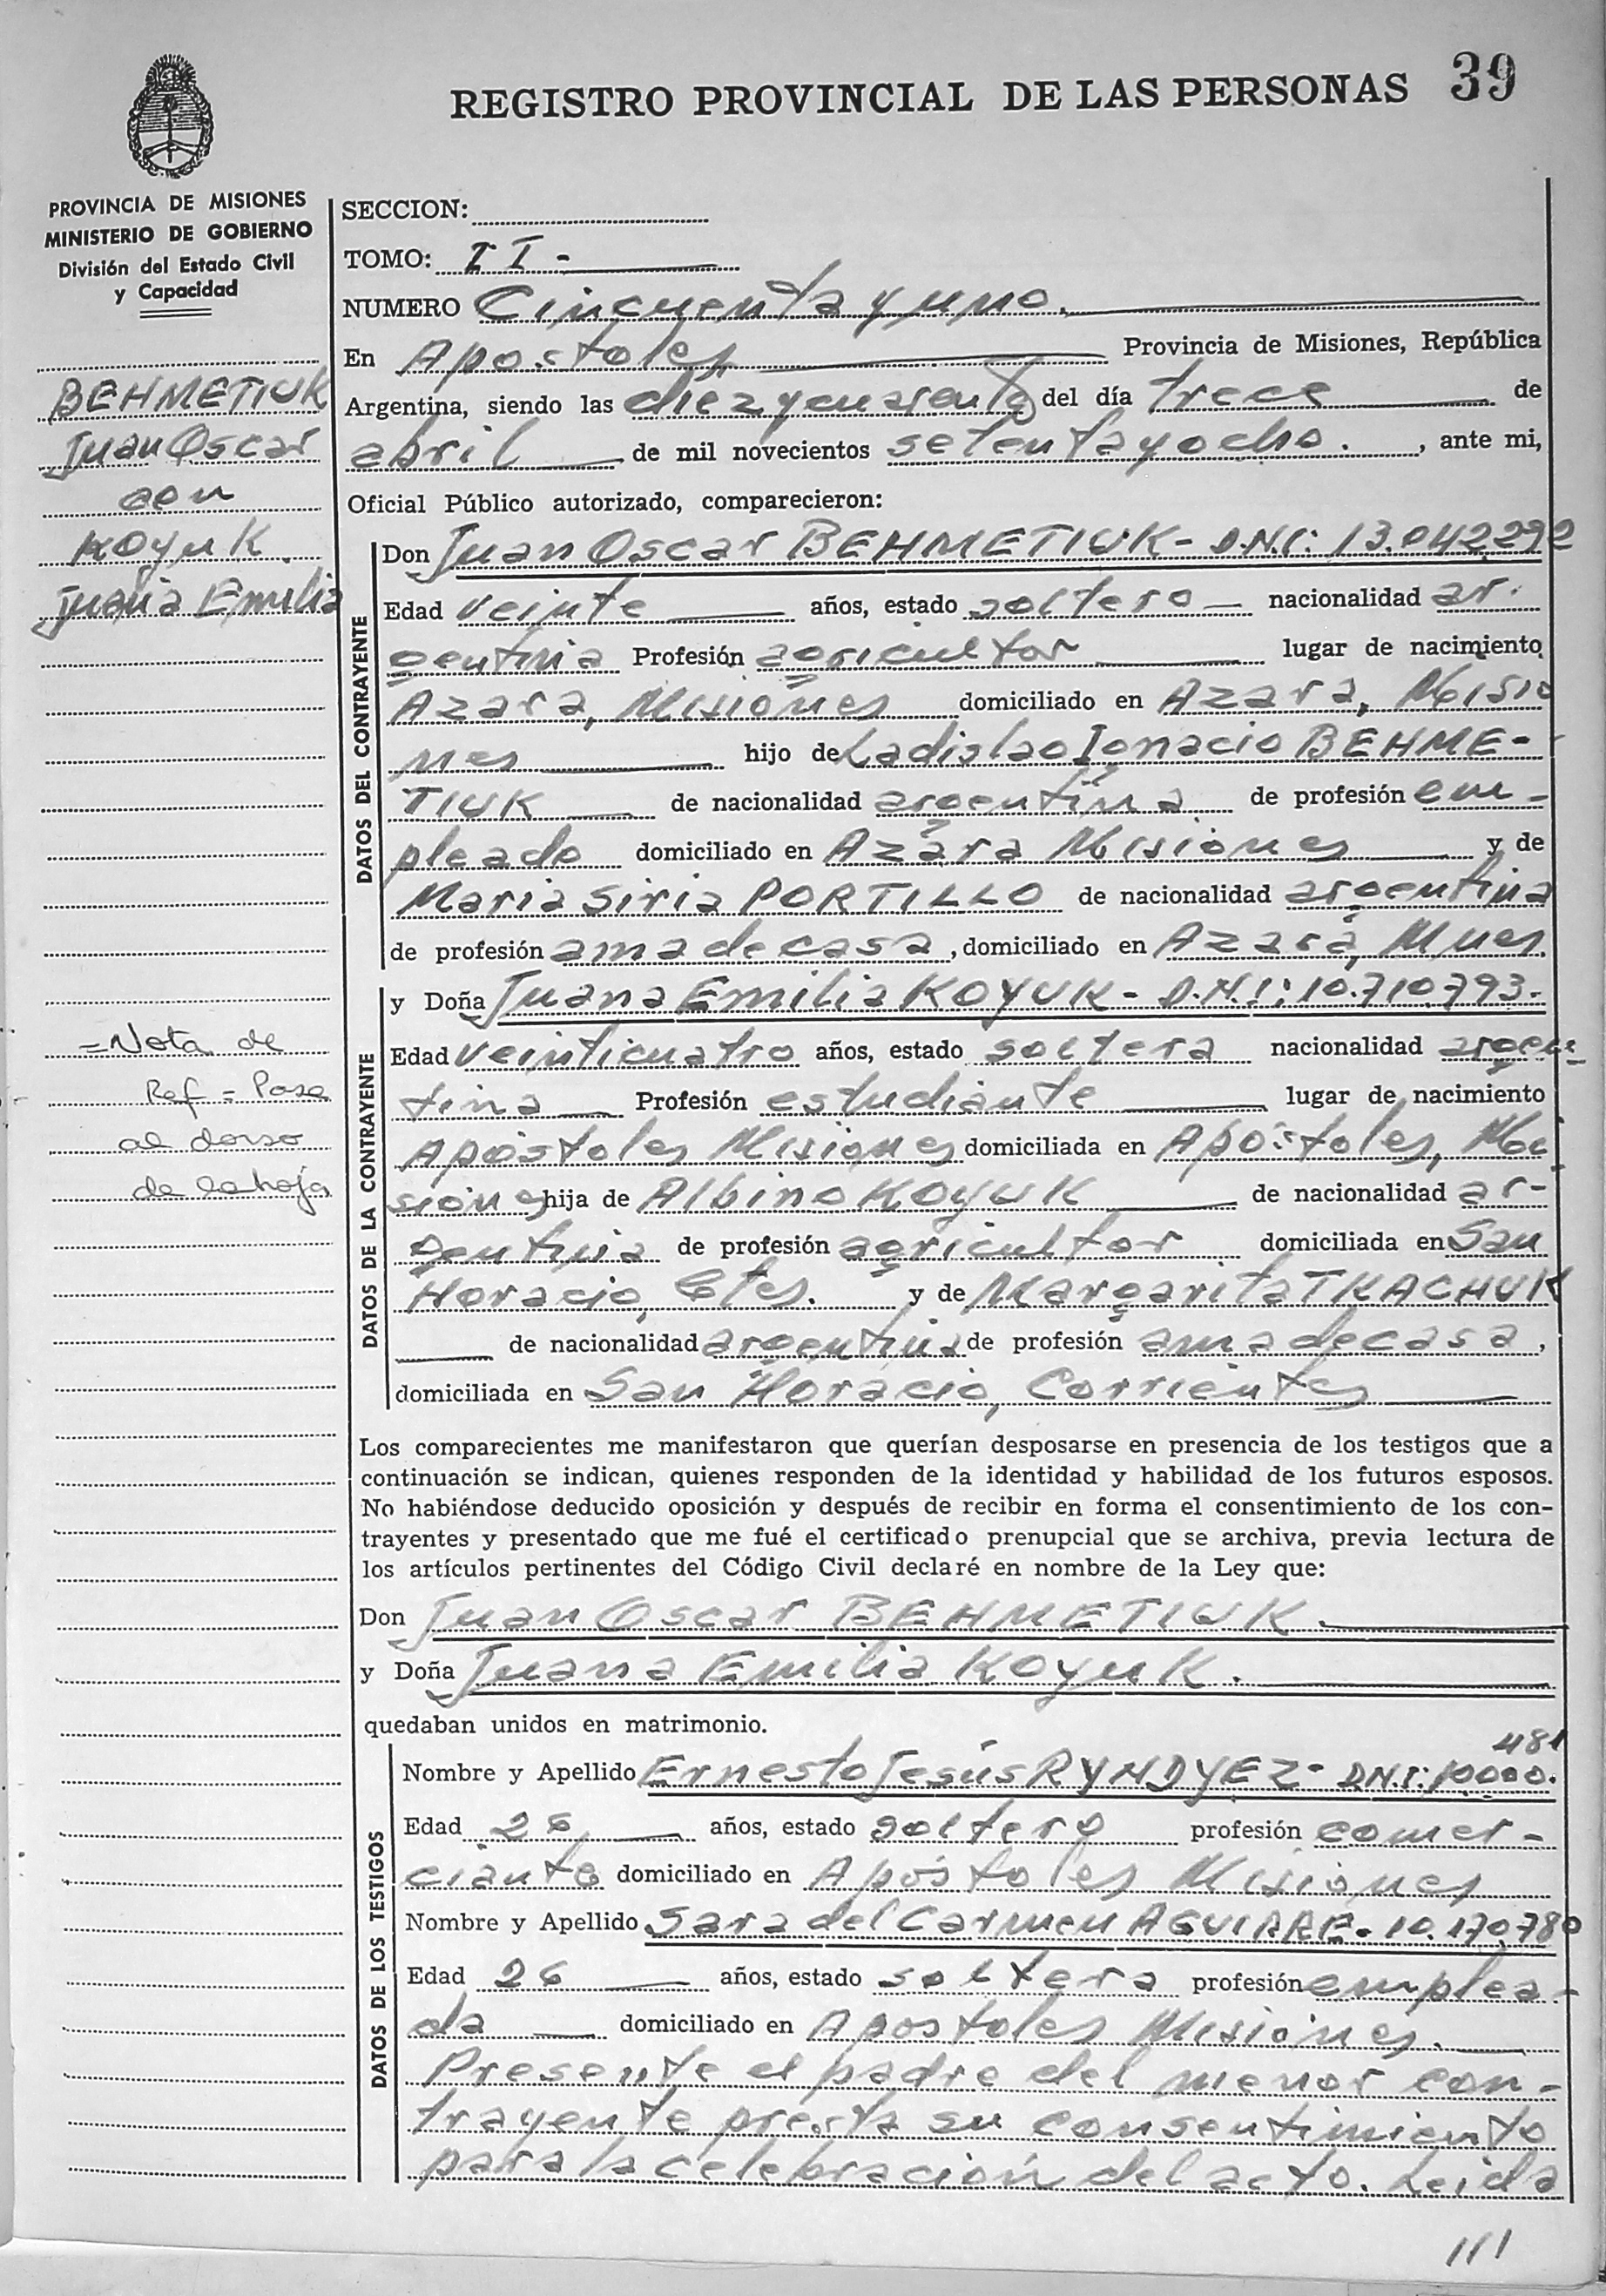 REGISTRO PROVINCIAL DE LAS PERSONAS 39
PROVINCIA DE MISIONES
MINISTERIO DE GOBIERNO
División del Estado Civil
y Capacidad
BEHMETIUK
Juan Oscar
con
KOYUK
Juana Emilia
=Nota de
Ref = Pasa
al dorso
de la hoja
SECCION:
TOMO: II -
NUMERO Cincuenta y uno.
En Apóstoles Provincia de Misiones, República
Argentina, siendo las diez y cuarenta del día trece de
abril de mil novecientos setenta y ocho. , ante mi,
Oficial Público autorizado, comparecieron:
DATOS DEL CONTRAYENTE
Don Juan Oscar BEHMETIUK - D.N.I: 13.042.292
Edad veinte años, estado soltero nacionalidad ar-
gentina Profesión agricultor lugar de nacimiento
Azara, Misiones domiciliado en Azara, Misio
nes hijo de Ladislao Ignacio BEHME-
TIUK de nacionalidad argentina de profesión em-
pleado domiciliado en Azara Misiones y de
Maria Siria PORTILLO de nacionalidad argentina
de profesión ama de casa, domiciliado en Azara, Mnes
DATOS DE LA CONTRAYENTE
y Doña Juana Emilia KOYUK - D.N.I: 10.710.793.
Edad veinticuatro años, estado soltera nacionalidad argen-
tina Profesión estudiante lugar de nacimiento
Apóstoles Misiones domiciliada en Apóstoles, Mi
siones hija de Albino KOYUK de nacionalidad ar-
gentina de profesión agricultor domiciliada en San
Horacio, Ctes. y de Margarita TKACHUK
de nacionalidad argentina de profesión ama de casa,
domiciliada en San Horacio, Corrientes
Los comparecientes me manifestaron que querían desposarse en presencia de los testigos que a
continuación se indican, quienes responden de la identidad y habilidad de los futuros esposos.
No habiéndose deducido oposición y después de recibir en forma el consentimiento de los con-
trayentes y presentado que me fué el certificado prenupcial que se archiva, previa lectura de
los artículos pertinentes del Código Civil declaré en nombre de la Ley que:
Don Juan Oscar BEHMETIUK.
y Doña Juana Emilia KOYUK.
quedaban unidos en matrimonio.
DATOS DE LOS TESTIGOS
481
Nombre y Apellido Ernesto Jesús RYNDYEZ - D.N.I: 10000.
Edad 26 años, estado soltero profesión comer-
ciante domiciliado en Apóstoles Misiones
Nombre y Apellido Sara del Carmen AGUIRRE - 10.170.780
Edad 26 años, estado soltera profesión emplea-
da domiciliado en Apóstoles Misiones.
Presente el padre del menor con-
trayente presta su consentimiento
para la celebración del acto. Leida
///